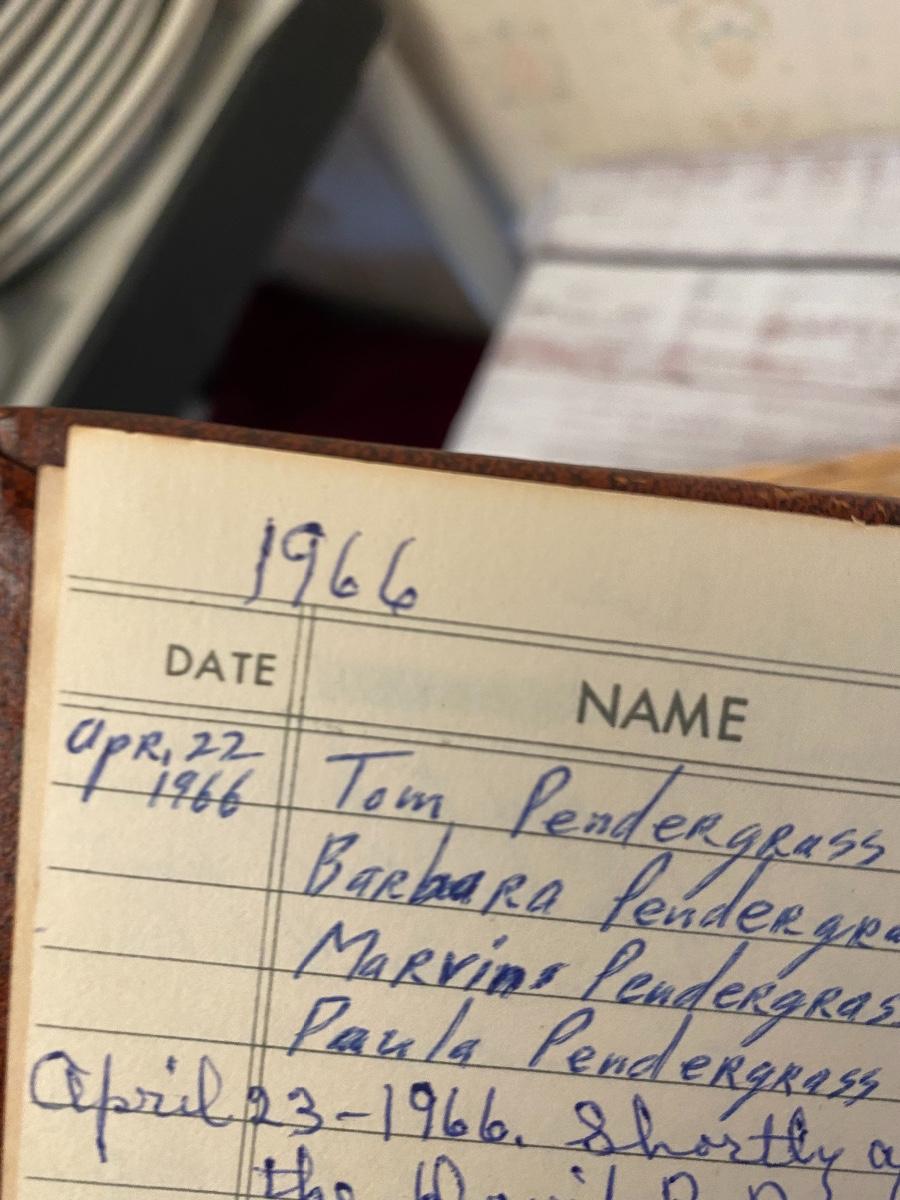 1966
DATE NAME
Apr, 22
1966
Tom Pendergrass
Barbara Pendergra
Marvins Pendergras
Paula Pendergrass
April 23-1966. Shortly a
the